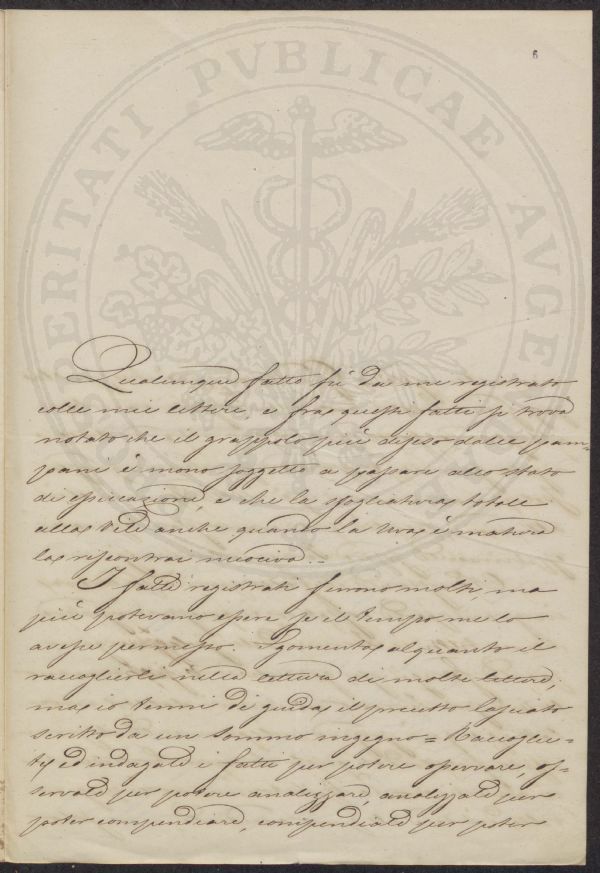 6
PROSPERITATI PVBLICAE AVGENDAE
Qualunque fatto fù da me registrato
colle mie lettere, e fra questi fatti si trova
notato che il grappolo più difeso dalle pam=
pani è meno soggetto a passare allo stato
di essiccazione, e che la sfogliatura totale
alla vite anche quando la uva è matura
la riscontrai nociva.
I fatti registrati furono molti, ma
più potevano essere se il tempo me lo
avesse permesso. Sgomenta alquanto il
raccoglierli nella lettura di molte lettere,
ma io tenni di guida il precetto lasciato
scritto da un sommo ingegno = Raccoglie=
te, ed indagate i fatti per potere osservare, os=
servate per potere analizzare, analizzate per
poter compendiare, compendiate per poter